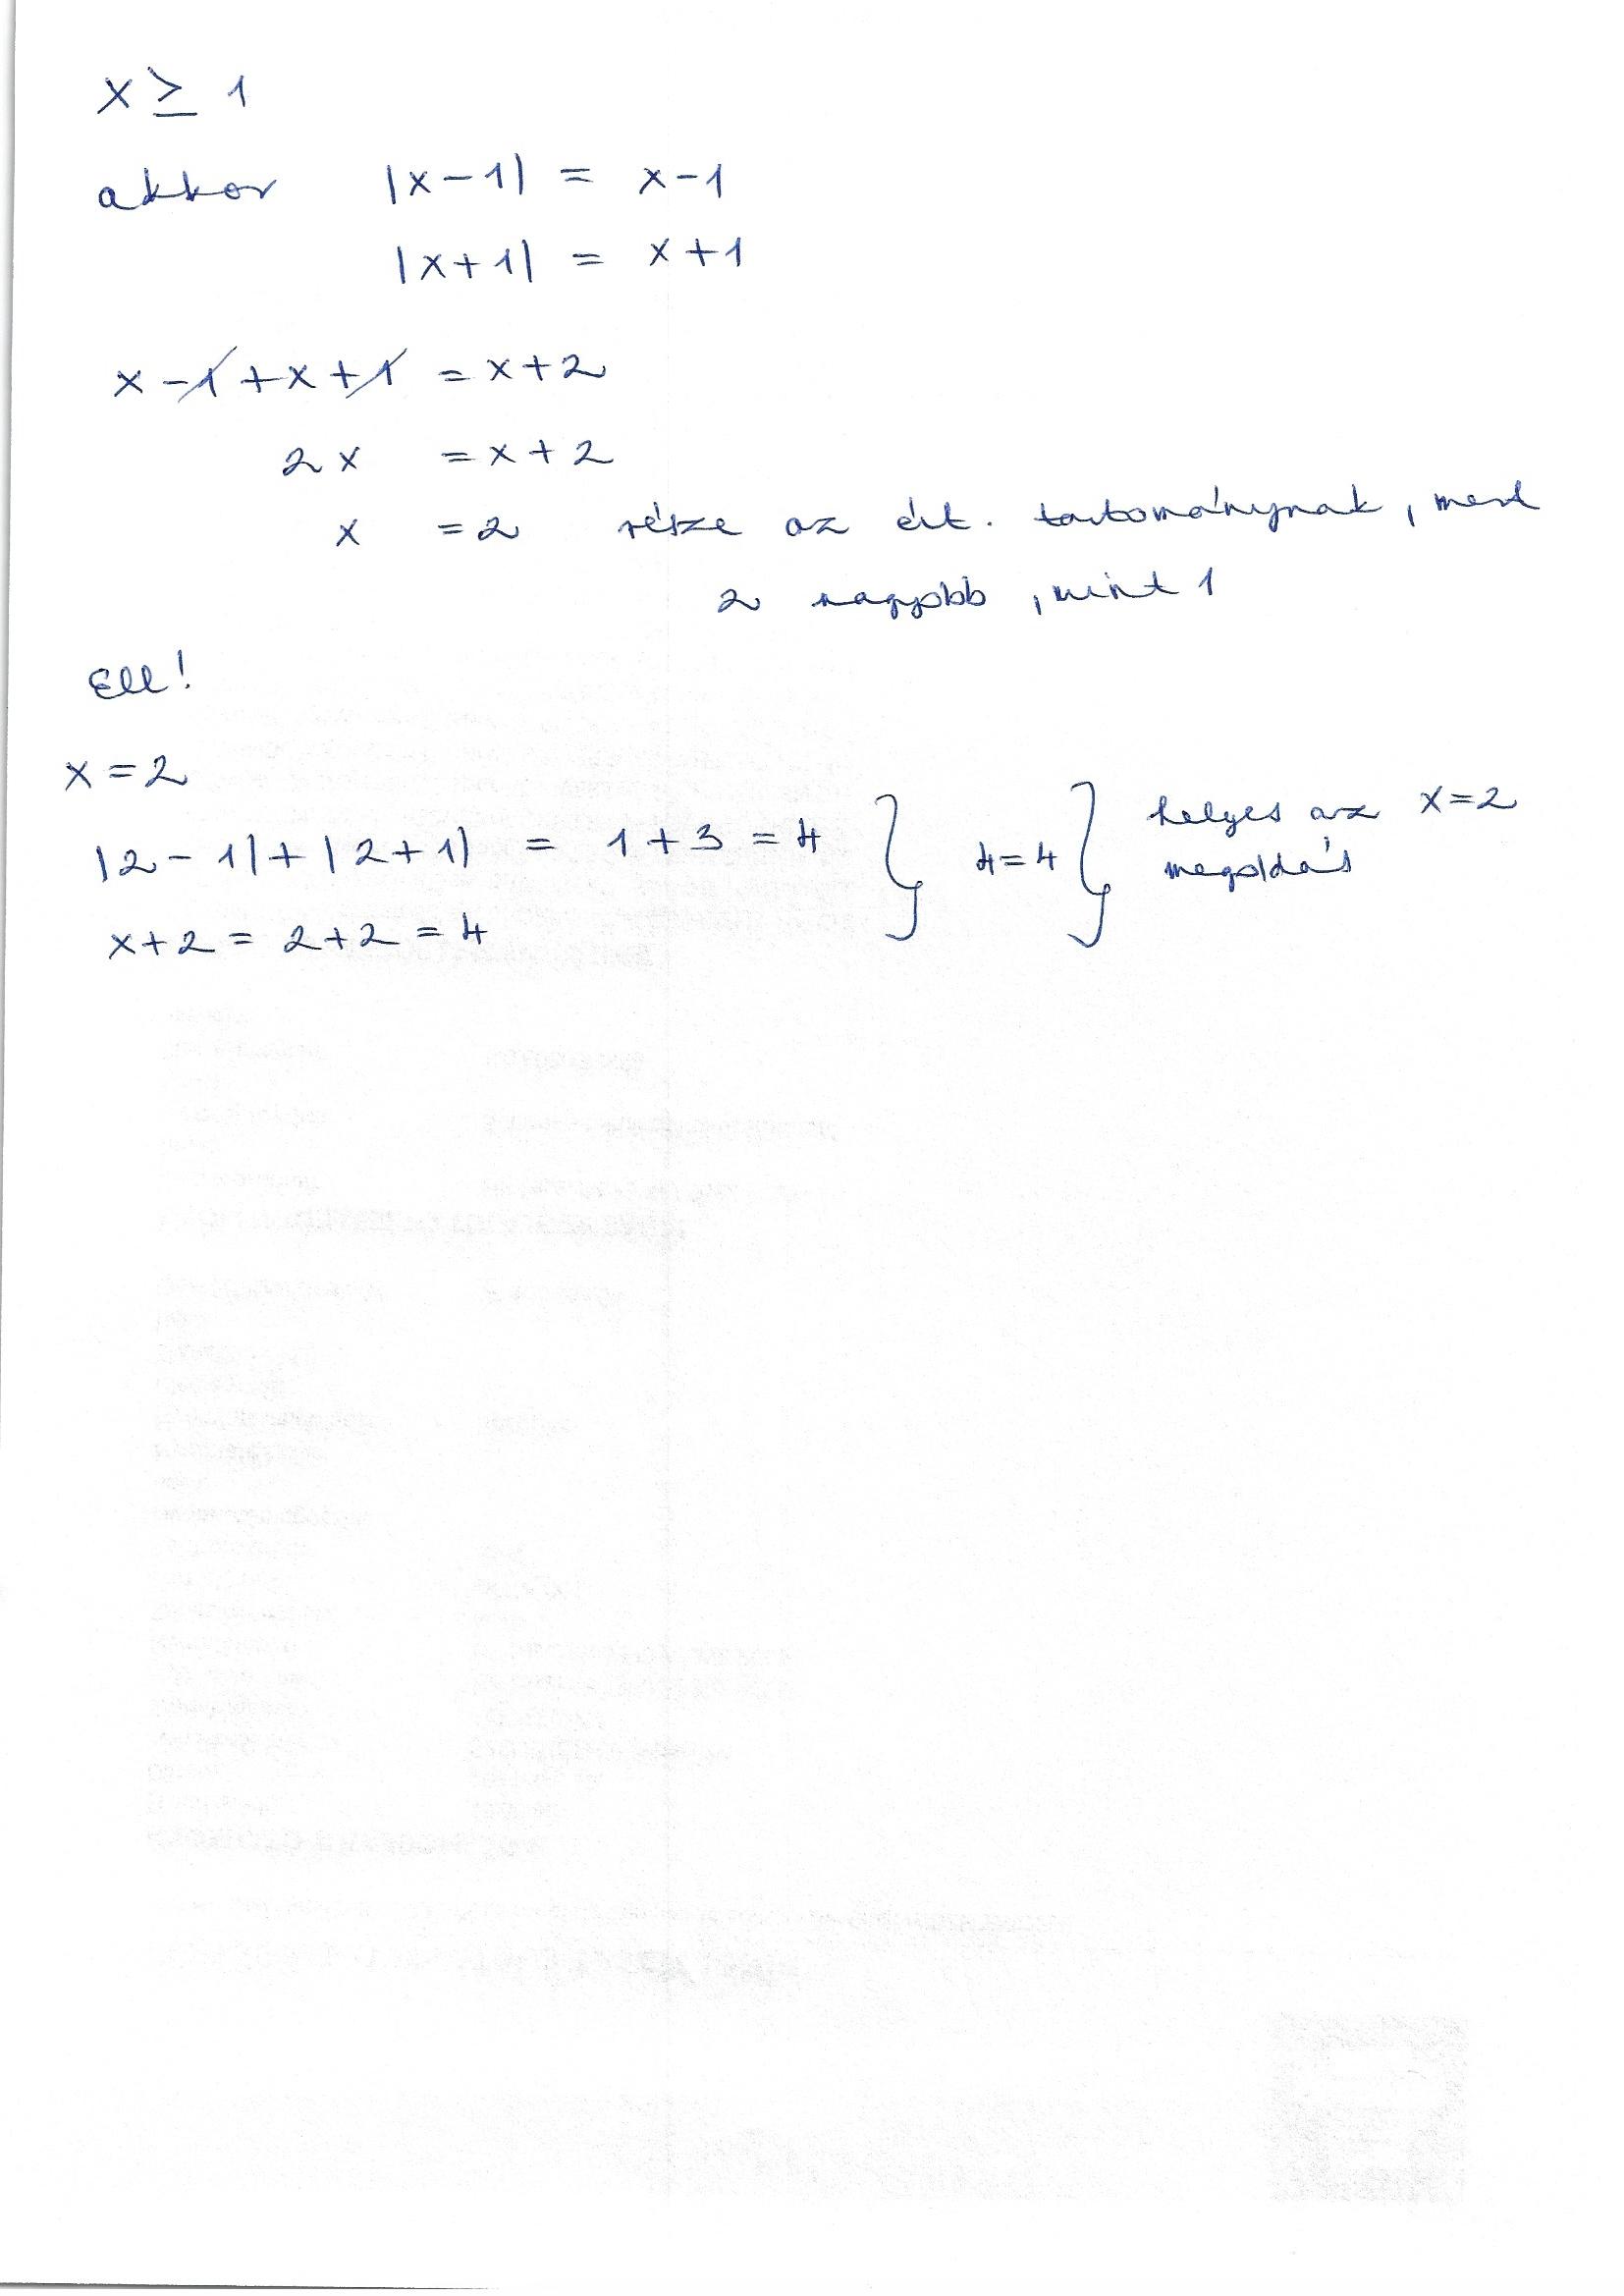 x ≥ 1
akkor |x-1| = x-1
|x+1| = x+1
x-1+x+1 = x+2
2x = x+2
x = 2 része az ért. tartománynak, mert
2 nagyobb, mint 1
Ell!
x=2
|2-1|+|2+1| = 1+3=4 } 4=4 } helyes az x=2
megoldás
x+2= 2+2=4